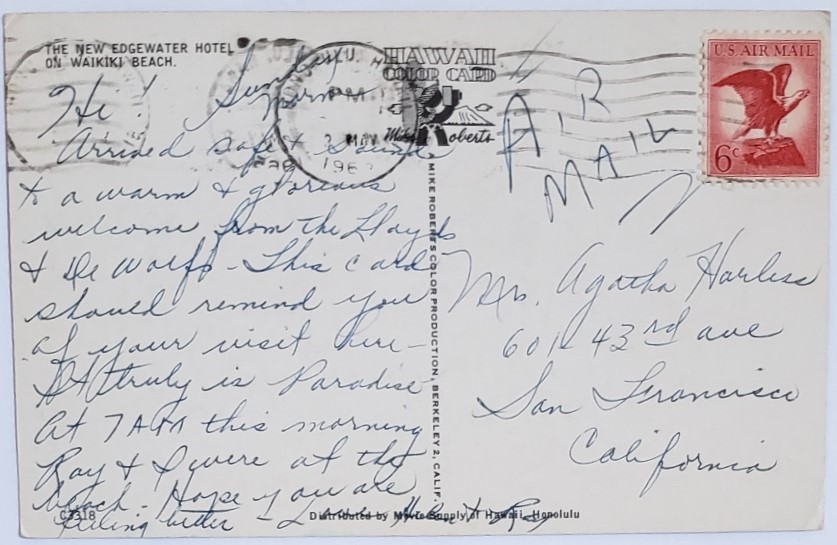 THE NEW EDGEWATER HOTEL
ON WAIKIKI BEACH.
Hi! Sunday
morn
Arrived safe & sound
& a warm & glorious
welcome from the Lloyds
& De Wolfs - This card
should remind you
of your visit here -
It truly is Paradise
At 7 AM this morning
Ray & I were at the
beach - Hope you are
feeling better - Love
C3318
HAWAII
COLOR CARD
Mike Roberts
HONOLULU, H
PM
2 MAY
196
MIKE ROBERTS COLOR PRODUCTION, BERKELEY 2, CALIF.
U.S. AIR MAIL
6c
AIR
MAIL
Mrs. Agatha Harless
601-43rd ave
San Francisco
California
Distributed by Movie Supply of Hawaii, Honolulu